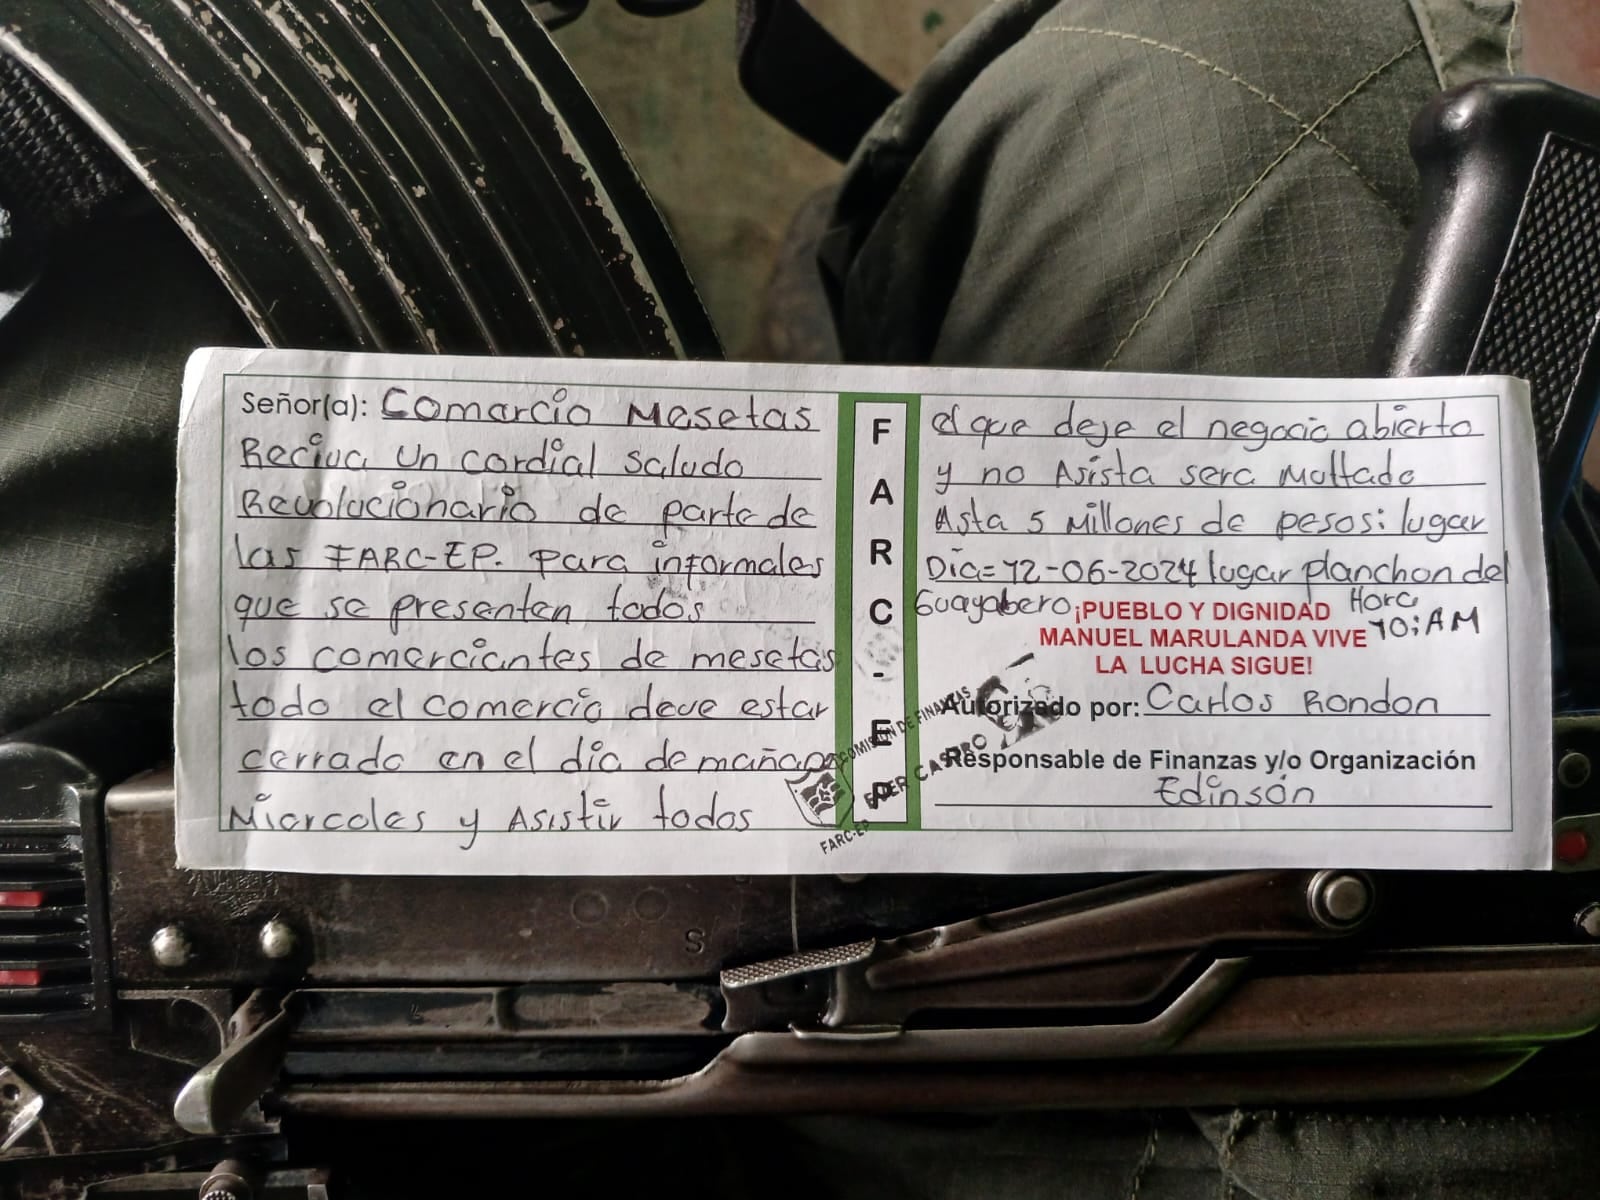 Señor(a): Comarcio Mesetas
Reciva un cordial saludo
Revolucionario de parte de
las FARC-EP. para informales
que se presenten todos
los comerciantes de mesetas
todo el comercio deve estar
cerrado en el dia de mañana
Miercoles y Asistir todos
FARC-EP
el que deje el negocio abierto
y no Asista sera Multado
Asta 5 Millones de pesos: lugar
Dia=12-06-2024 lugar planchon del
Guayabero Hora 10:AM
¡PUEBLO Y DIGNIDAD
MANUEL MARULANDA VIVE
LA LUCHA SIGUE!
Autorizado por: Carlos Rondon
Responsable de Finanzas y/o Organización
Edinsón
COMISIÓN DE FINANZAS
EDER CASTRO
FARC-EP
S